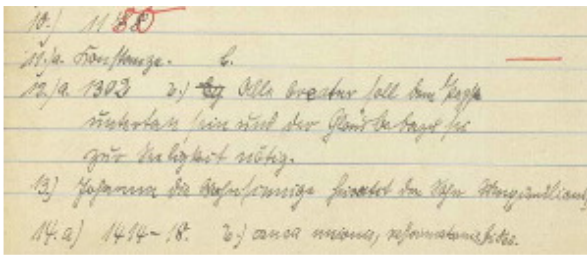 10.) 1180
11.)a. Konstanze. b.
12.)a. 1302 2.) Alle Creatur soll dem Papst
untertan sein und der Glaube daran sei
zur Seligkeit nötig.
13.) Johanna die Wahnsinnige heiratet den Sohn Maximilians
14.a) 1414-18. b.) causa unionis, reformationis, fidei.